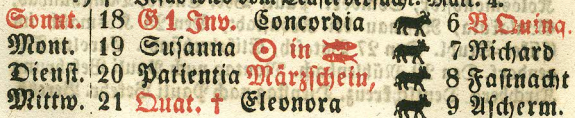 Sonnt. 18 G 1 Inv. Concordia 6 B Quinq.
Mont. 19 Susanna ☉ in ♓ 7 Richard
Dienst. 20 Patientia Märzschein, 8 Fastnacht
Mittw. 21 Quat. † Eleonora 9 Ascherm.